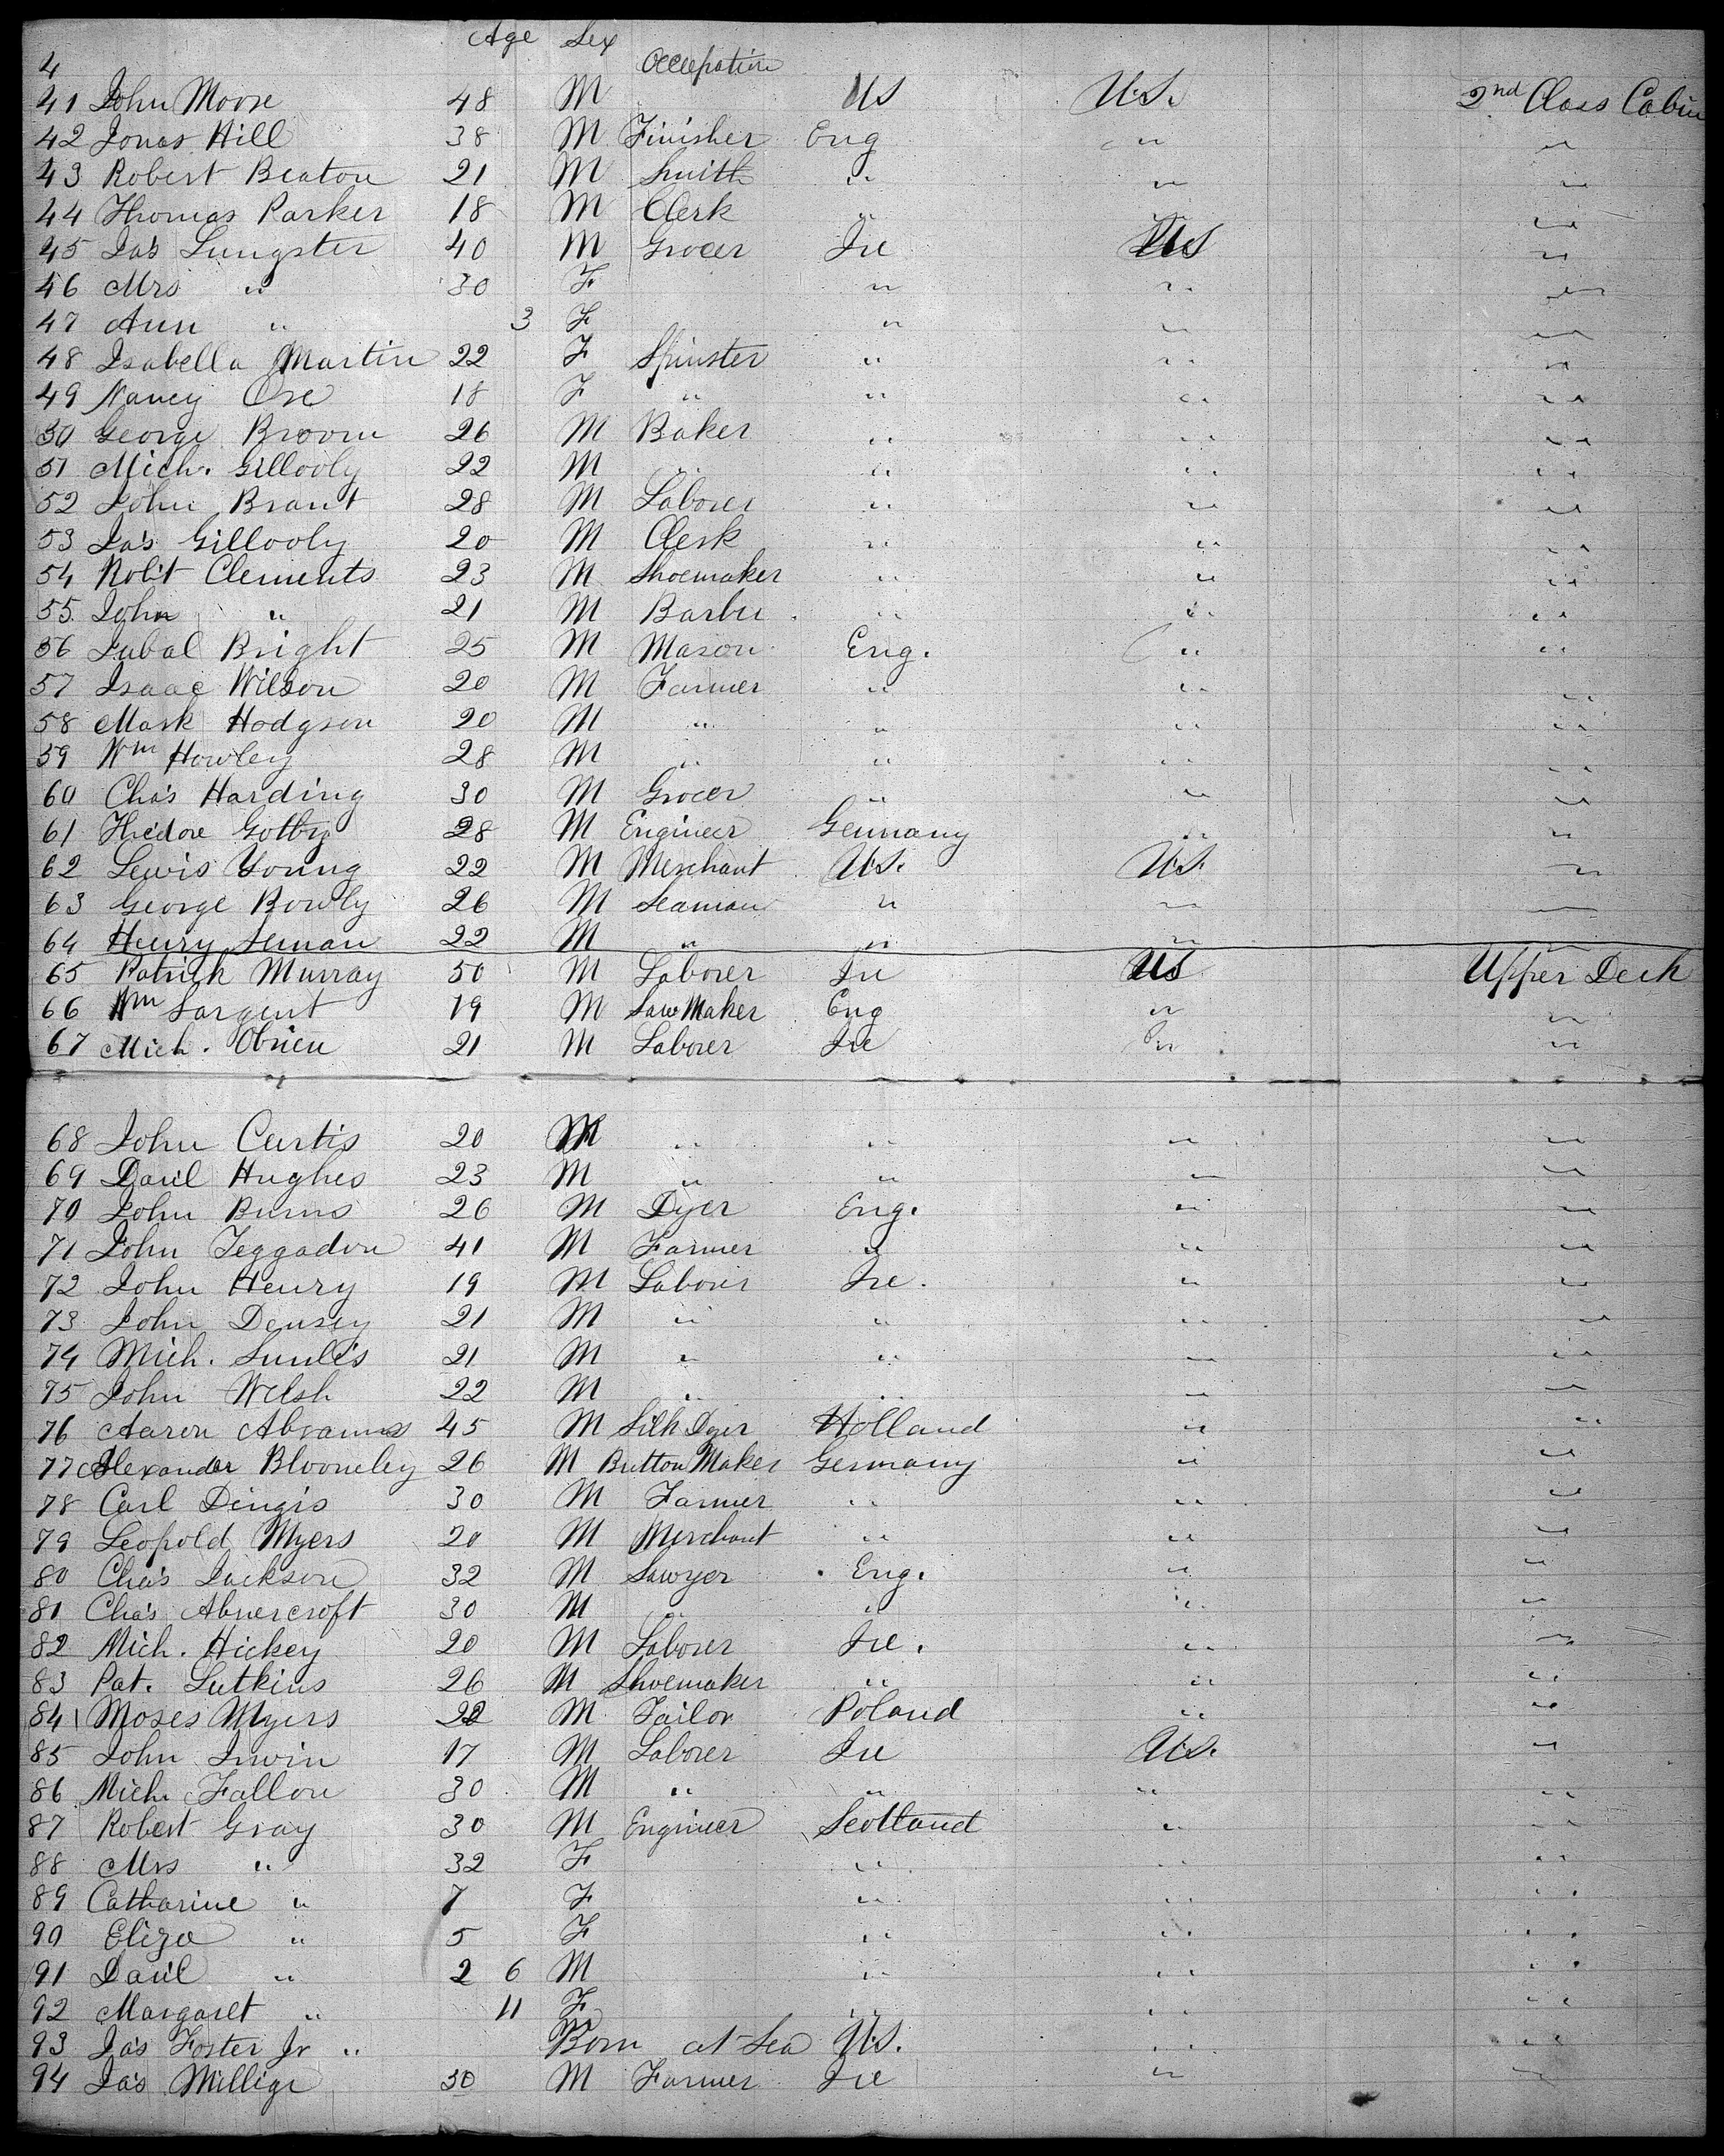 Age Sex
4 Occupation
41 John Moore 48 M US U.S. 2nd Class Cabin
42 Jonas Hill 38 M Finisher Eng " "
43 Robert Beaton 21 M Smith " " "
44 Thomas Parker 18 M Clerk " " "
45 Jas Sungster 40 M Grocer Ire US "
46 Mrs " 30 F " " "
47 Ann " 3 F " " "
48 Isabella Martin 22 F Spinster " " "
49 Nancy Orr 18 F " " " "
50 George Broom 26 M Baker " " "
51 Mich. Gillooly 22 M " " " "
52 John Brant 28 M Laborer " " "
53 Jas Gillooly 20 M Clerk " " "
54 Robt Clements 23 M Shoemaker " " "
55. John " 21 M Barber " " "
56 Jubal Bright 25 M Mason Eng. " "
57 Isaac Wilson 20 M Farmer " " "
58 Mark Hodgson 20 M " " " "
59 Wm Howley 28 M " " " "
60 Chas Harding 30 M Grocer " " "
61 Theodore 28 M Engineer Germany " "
62 Lewis Young 22 M Merchant U.S. U.S. "
63 George Bowly 26 M Seaman " " "
64 Henry Seman 22 M " " " "
65 Patrick Murray 50 M Laborer Ire US Upper Deck
66 Wm Sargent 19 M Saw Maker Eng " "
67 Mich. Obrien 21 M Laborer Ire " "
68 John Curtis 20 M " " " "
69 Danl Hughes 23 M " " " "
70 John Burns 26 M Dyer Eng. " "
71 John Teggadon 41 M Farmer " " "
72 John Henry 19 M Laborer Ire. " "
73 John Densey 21 M " " " "
74 Mich. 21 M " " " "
75 John Welsh 22 M " " " "
76 Aaron Abrams 45 M Silk Dyer Holland " "
77 Alexander Bloomeley 26 M Button Maker Germany " "
78 Carl Dingis 30 M Farmer " " "
79 Leopold Myers 20 M Merchant " " "
80 Chas Jackson 32 M Sawyer Eng. " "
81 Chas Abnercroft 30 M " " " "
82 Mich. Hickey 20 M Laborer Ire. " "
83 Pat. Lutkins 26 M Shoemaker " " "
84 Moses Myers 22 M Tailor Poland " "
85 John Irwin 17 M Laborer Ire U.S. "
86 Mich Fallon 30 M " " " "
87 Robert Gray 30 M Engineer Scotland " "
88 Mrs " 32 F " " "
89 Catharine " 7 F " " "
90 Eliza " 5 F " " "
91 Danl " 2 6 M " " "
92 Margaret " 11 F " " "
93 Jas Foster Jr " Born at Sea U.S. " "
94 Jas Millige 30 M Farmer Ire " "